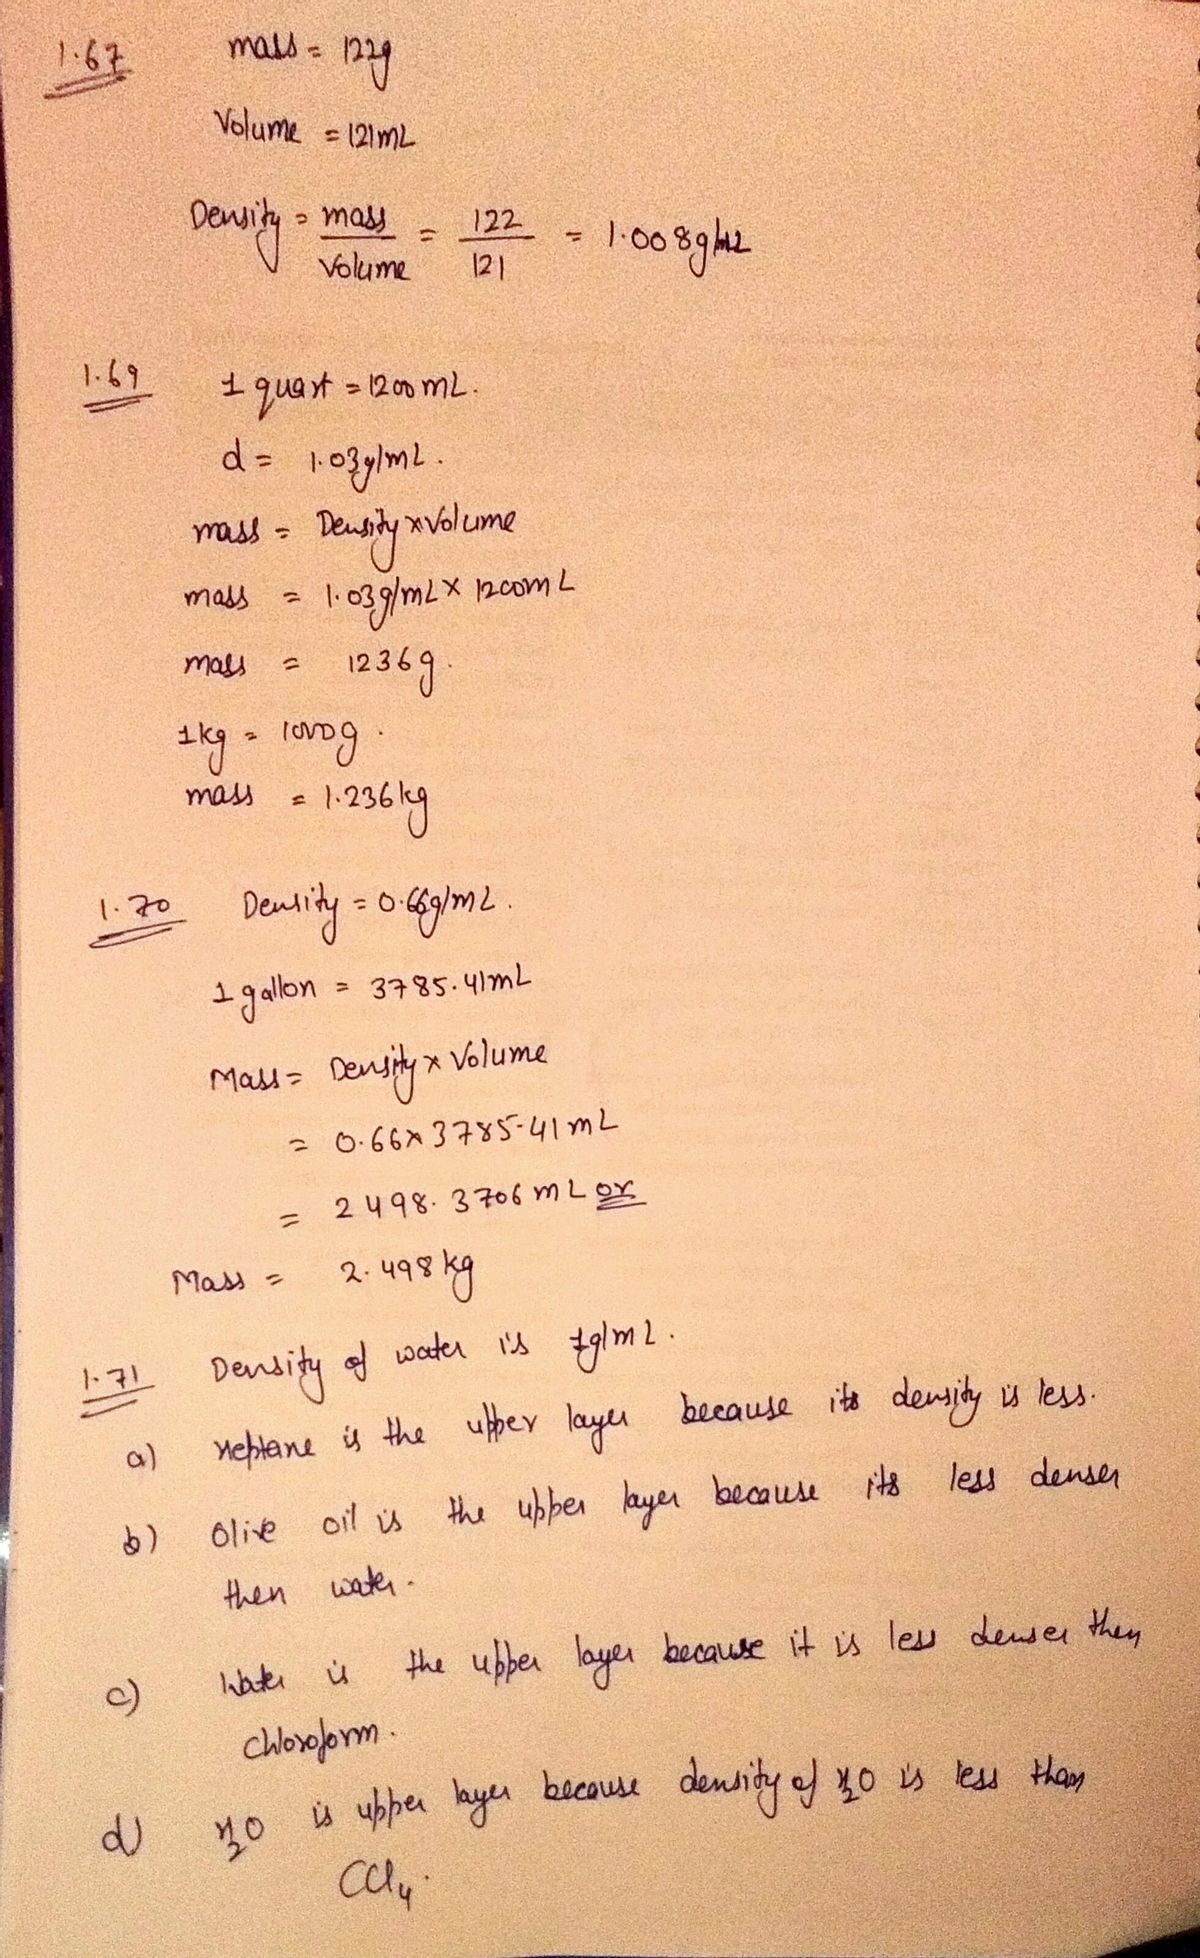 1.67 mass = 122g
Volume = 121mL
Density = mass/Volume = 122/121 = 1.008g/mL
1.69 1 quart = 1200mL.
d = 1.03g/mL.
mass = Density x Volume
mass = 1.03g/mL x 1200mL
mass = 1236g.
1kg = 1000g.
mass = 1.236kg
1.70 Density = 0.66g/mL.
1 gallon = 3785.41mL
Mass = Density x Volume
= 0.66 x 3785.41mL
= 2498.3706mL or
Mass = 2.498kg
1.71 Density of water is 1g/mL.
a) Heptane is the upper layer because its density is less.
b) Olive oil is the upper layer because its less denser
then water.
c) Water is the upper layer because it is less denser then
chloroform.
d) H2O is upper layer because density of H2O is less than
CCl4.